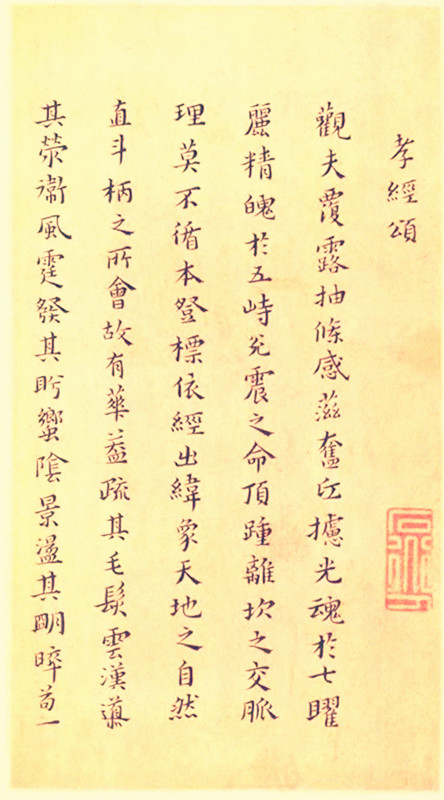 孝經頌
觀夫覆露抽條感奮攄光魂於七曜
麗精魄於五峙兌震之命頂踵離坎之交脈
理莫不循本登標依經出緯象天地之自然
直斗柄之所會故有華蓋疏其毛髮雲漢導
其滎衛風霆發其肸蠁陰景盪其明晬苟一